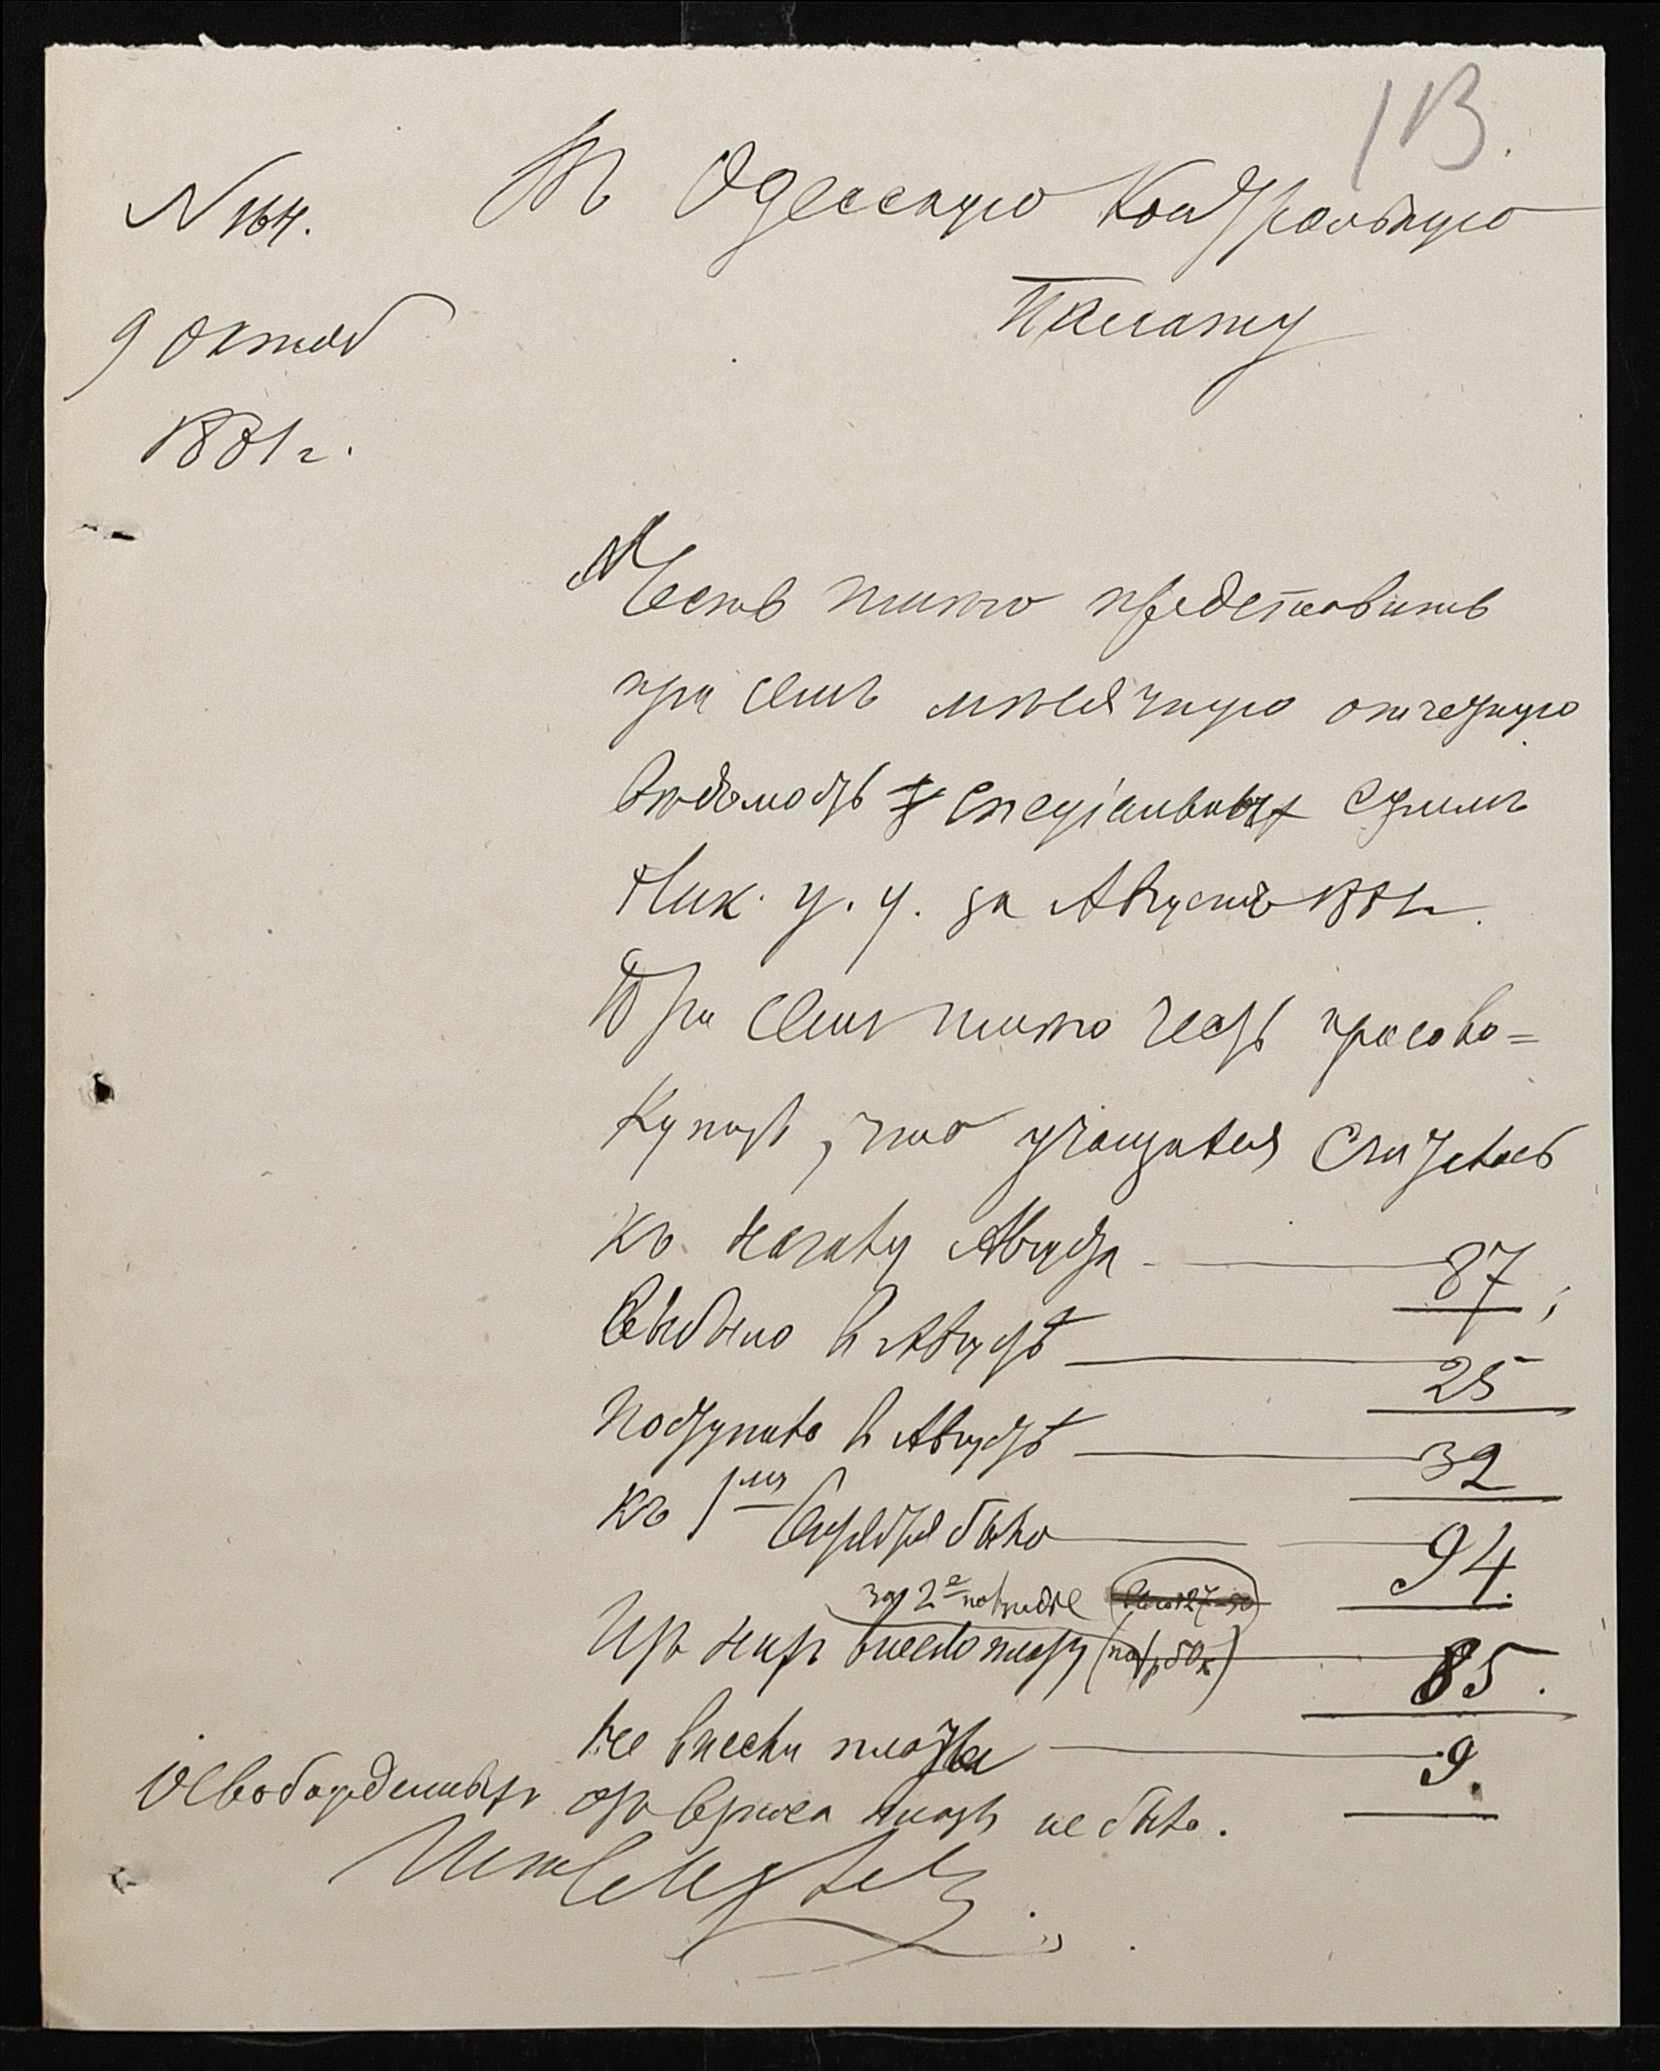 113.
N 164.
Въ Одесскую Контрольную
Палату
9 Октяб
1881 г.
Честь имѣю представить
при семъ мѣсячную отчетную
вѣдомость спеціальныхъ суммъ
Ник. у. у. за Августъ 1881 г.
При семъ имѣю честь присово=
купить, что учащихся считалось
къ началу Августа 87;
Выбыло в Августѣ 25
Поступило в Августѣ 32
къ 1му Сентября было 94.
за 2е полугодіе
Изъ нихъ внесло плату 85.
не внесли платы 9.
Освобожденныхъ отъ взноса платы не было.